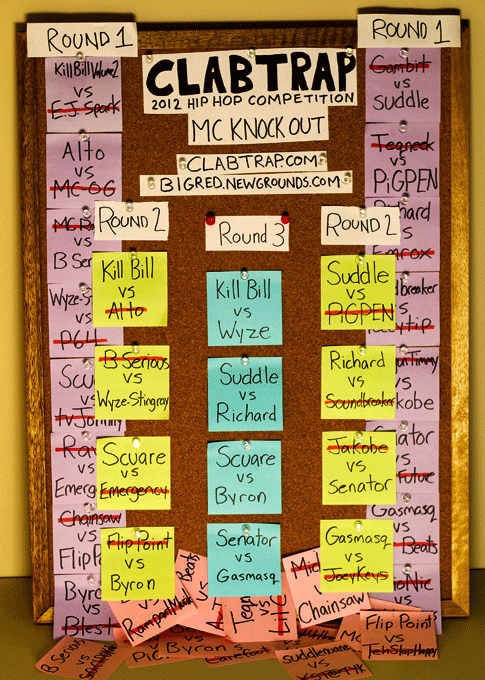 ROUND 1
ROUND 1
CLABTRAP
2012 HIP HOP COMPETITION
MC KNOCK OUT
CLABTRAP.COM
BIGRED.NEWGROUNDS.COM
Kill Bill Volume 2
VS
E.J. Spark
Alto
vs
MC-OG
VS
B Ser
Wyze-S
vs
P64
Scu
vs
tv Johnny
vs
Emerg
Chainsaw
vs
FlipP
Byro
vs
Blest
ROUND 2
Kill Bill
vs
Alto
B Serious
vs
Wyze-Stingray
Scuare
vs
Emergency
Flip Point
vs
Byron
Round 3
Kill Bill
vs
Wyze
Suddle
vs
Richard
Scuare
vs
Byron
Senator
vs
Gasmasq
ROUND 2
Suddle
vs
PiGPEN
Richard
vs
Soundbreaker
Jakobe
vs
Senator
Gasmasq
vs
JoeyKeys
Gambit
vs
Suddle
Teqneck
vs
PiGPEN
hard
vs
Emcox
breaker
vs
tip
Timmy
vs
kobe
ator
vs
Future
Gasmasq
vs
Beats
oNic
vs
Beats
vs
vs
Chainsaw
Flip Point
vs
TehSlapHappy
B Serious
vs
Byron
Carefoot
suddleware
vs